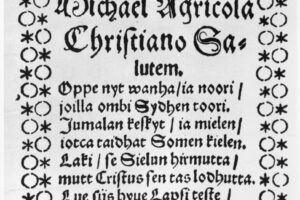 Michael Agricola
Christiano Sa-
lutem.
Oppe nyt wanha/ ia noori/
joilla ombi Sydhen toori.
Jumalan keskyt/ ia mielen/
iotca taidhat Somen kielen.
Laki/ se Sielun hirmutta/
mutt Cristus sen tas lodhutta.
Lue sijs hyue Lapsi teste/